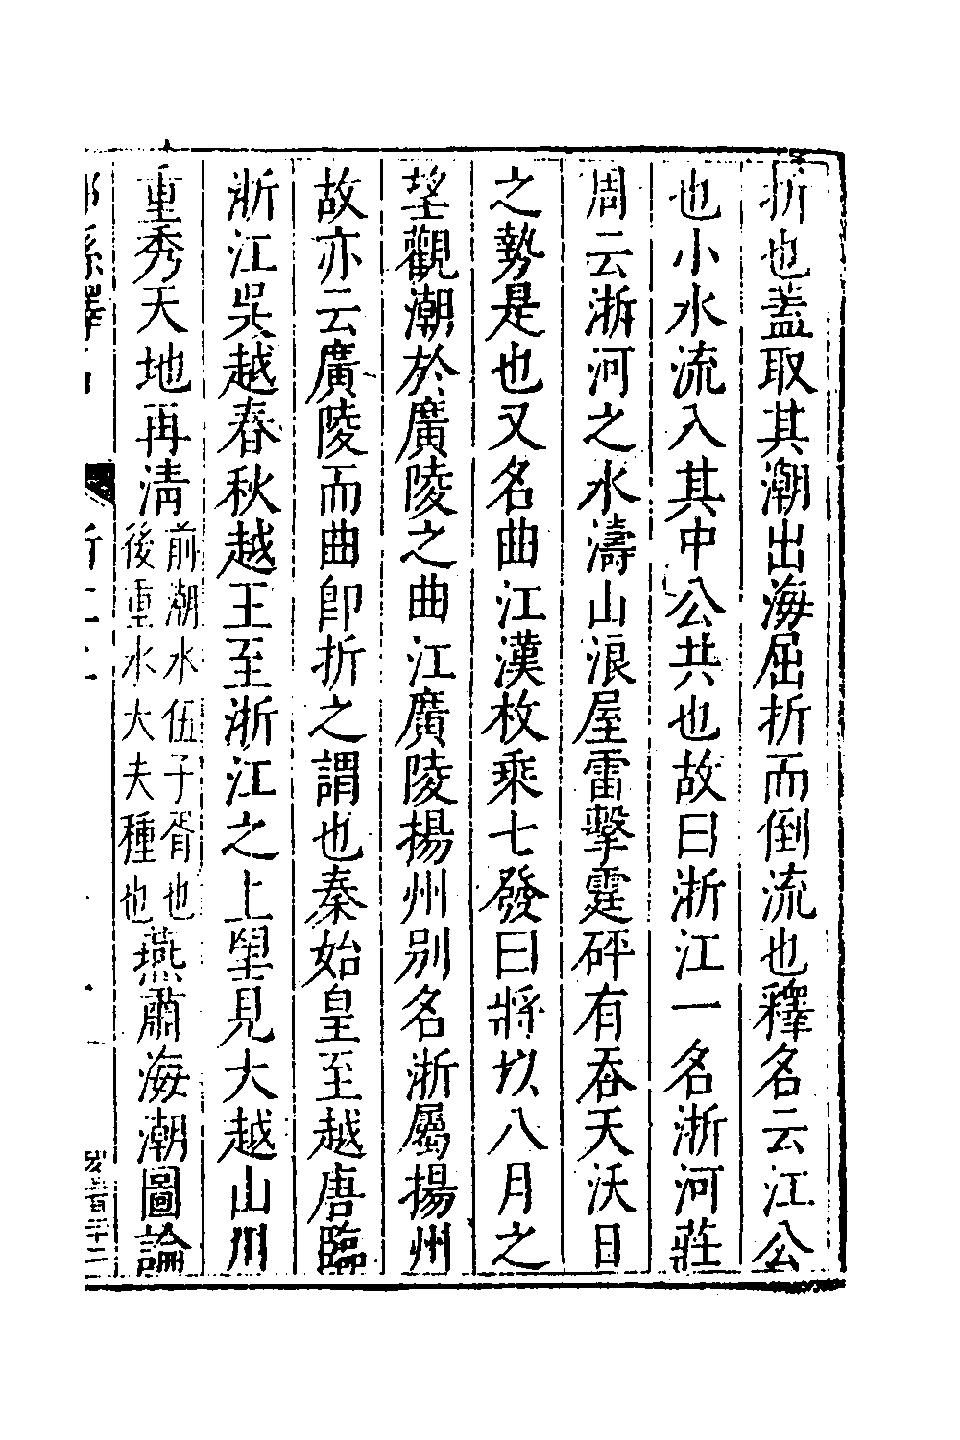 折也蓋取其潮出海屈折而倒流也釋名云江公
也小水流入其中公共也故曰浙江一名浙河莊
周云浙河之水濤山浪屋雷擊霆砰有吞天沃日
之勢是也又名曲江漢枚乘七發曰將以八月之
望觀潮於廣陵之曲江廣陵揚州别名浙屬揚州
故亦云廣陵而曲卽折之謂也秦始皇至越唐臨
浙江吳越春秋越王至浙江之上望見大越山川
重秀天地再清前潮水伍子胥也後重水大夫種也燕肅海潮圖論